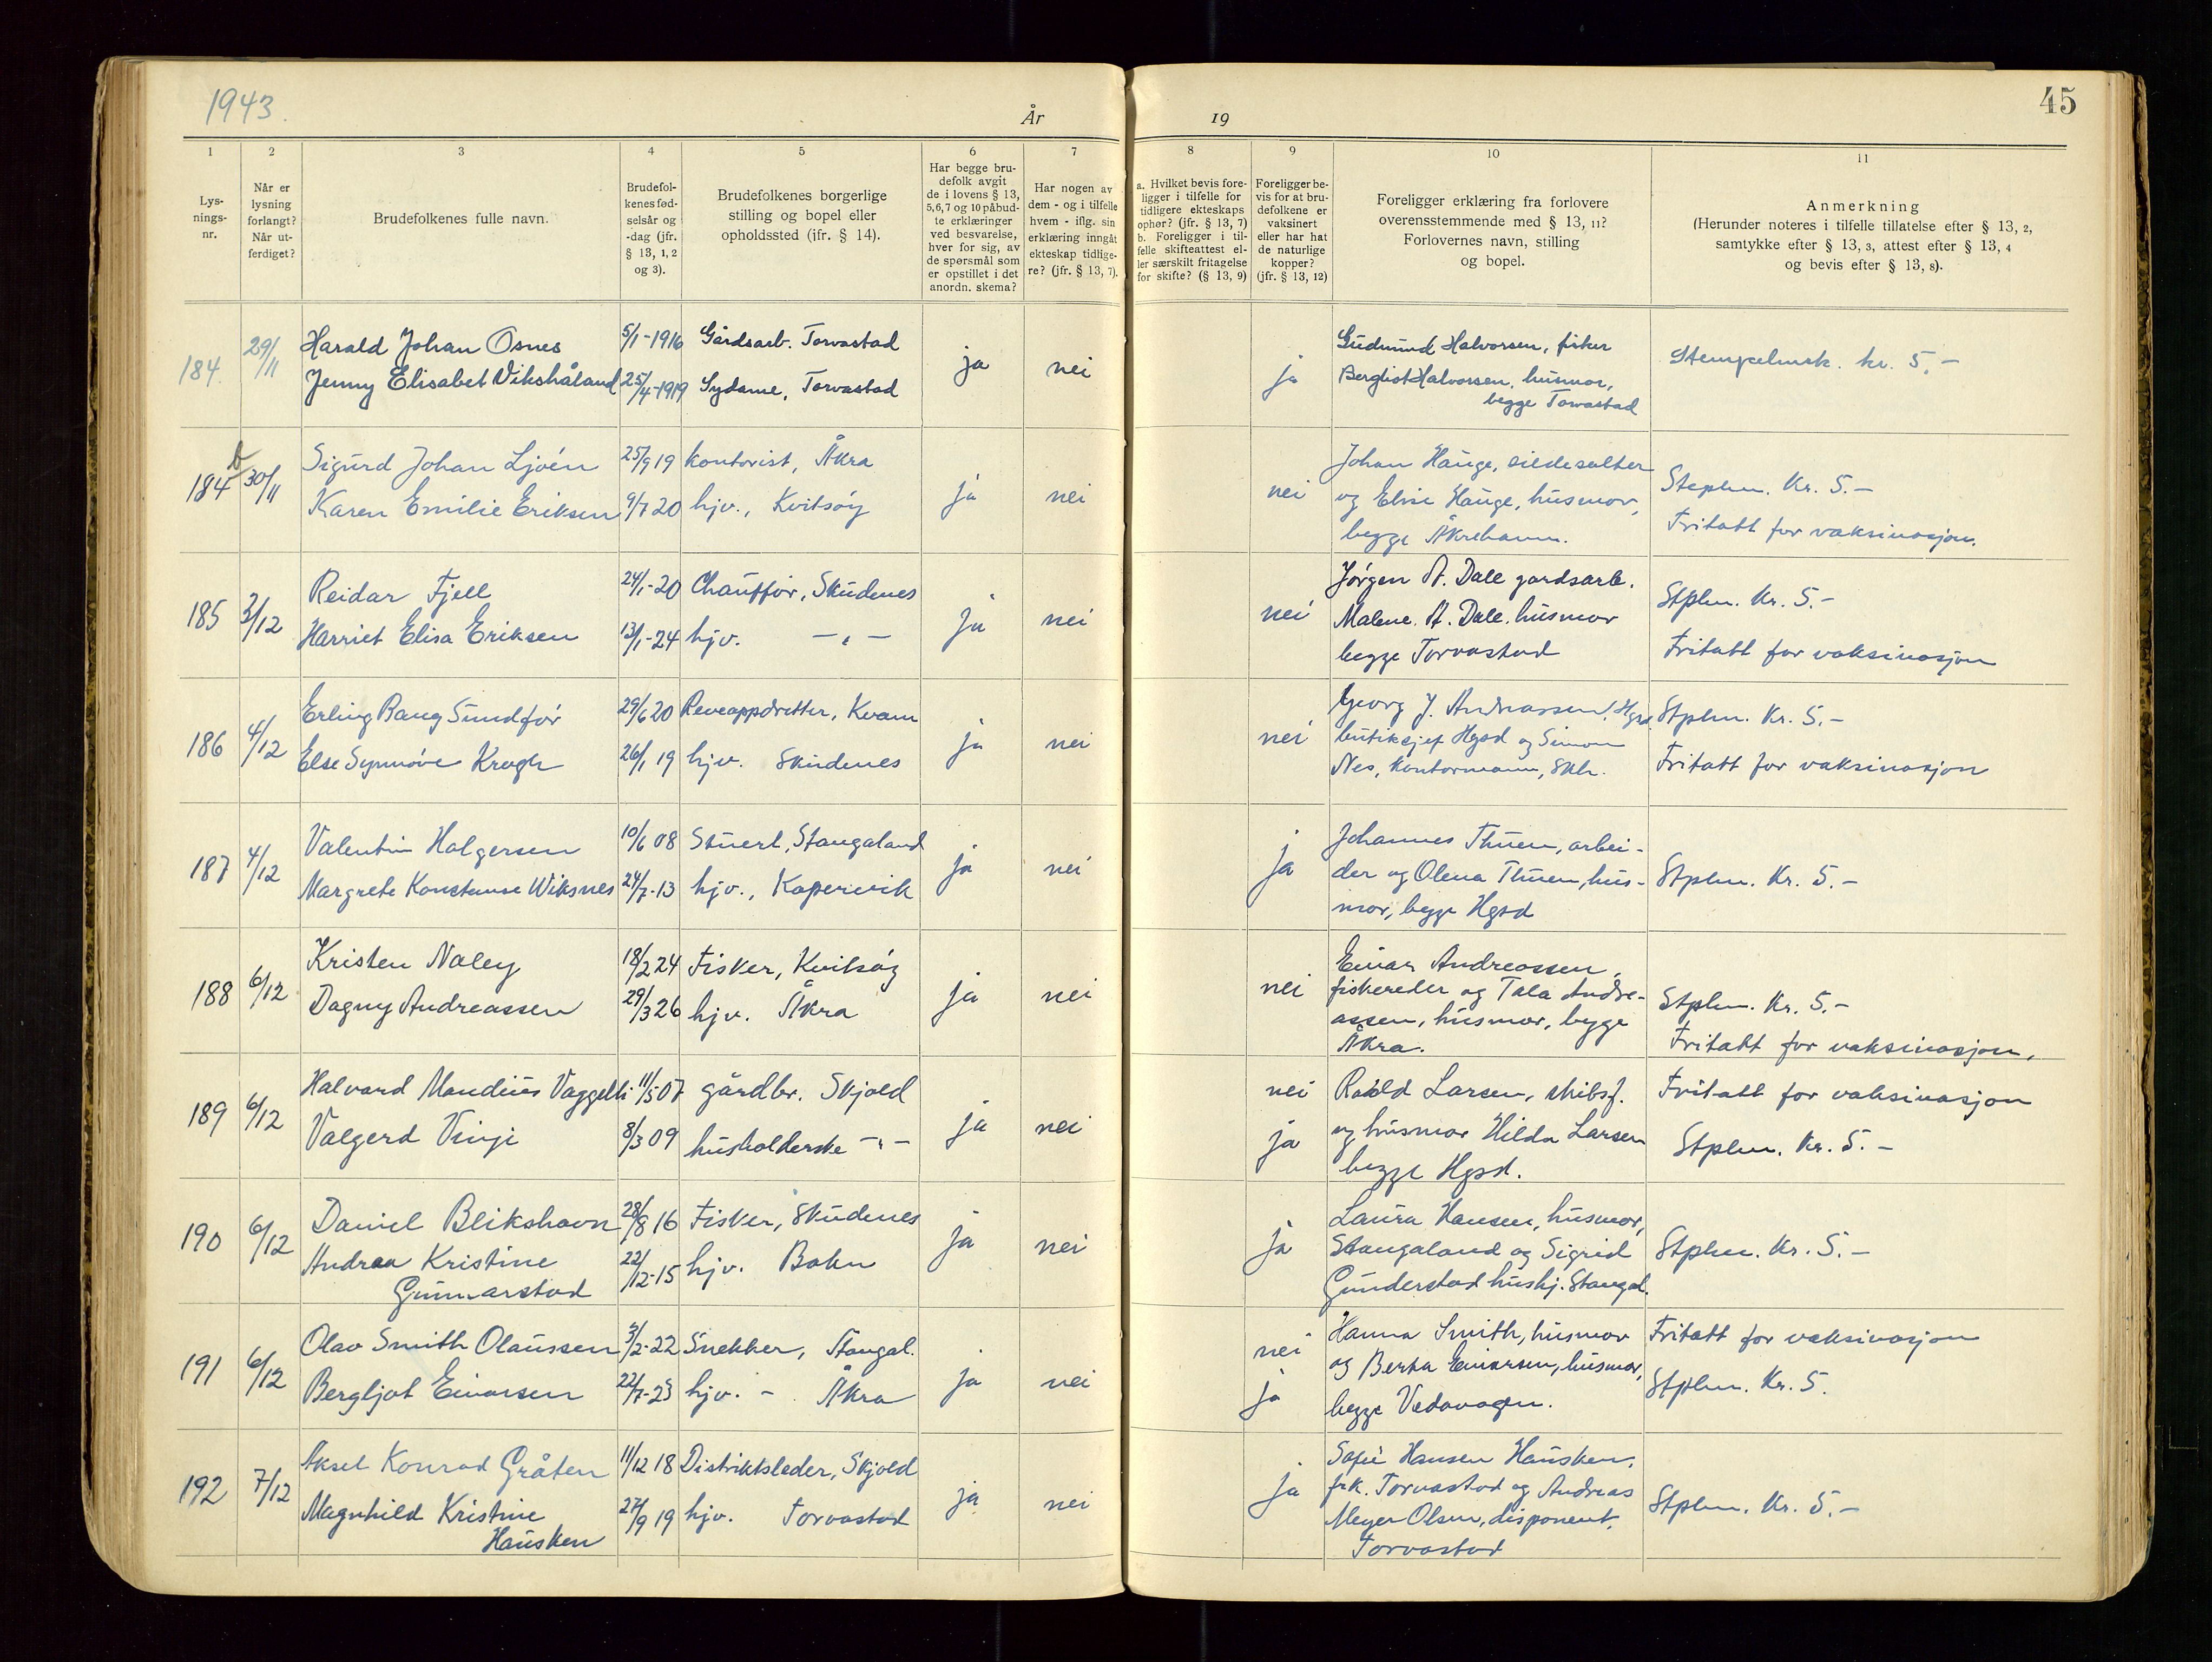 1943.
År
19
45
1
2
3
4
5
6
7
8
9
10
11
Lys-
nings-
nr.
Når er
lysning
forlangt?
Når ut-
ferdiget?
Brudefolkenes fulle navn.
Brudefol-
kenes fød-
selsår og
-dag (jfr.
§ 13, 1, 2
og 3).
Brudefolkenes borgerlige
stilling og bopel eller
opholdssted (jfr. § 14).
Har begge bru-
defolk avgit
de i lovens § 13,
5, 6, 7 og 10 påbud-
te erklæringer
ved besvarelse,
hver for sig, av
de spørsmål som
er opstillet i det
anordn. skema?
Har nogen av
dem - og i tilfelle
hvem - iflg. sin
erklæring inngåt
ekteskap tidlige-
re? (jfr. § 13, 7).
a. Hvilket bevis fore-
ligger i tilfelle for
tidligere ekteskaps
ophør? (jfr. § 13, 7)
b. Foreligger i til-
felle skifteattest el-
ler særskilt fritagelse
for skifte? (§ 13, 9)
Foreligger be-
vis for at bru-
defolkene er
vaksinert
eller har hat
de naturlige
kopper?
(jfr. § 13, 12)
Foreligger erklæring fra forlovere
overensstemmende med § 13, 11?
Forlovernes navn, stilling
og bopel.
Anmerkning
(Herunder noteres i tilfelle tillatelse efter § 13, 2,
samtykke efter § 13, 3, attest efter § 13, 4
og bevis efter § 13, 8).
184. 29/11 Harald Johan Osnes 5/1-1916 Gårdsarb. Torvastad ja nei ja Gudmund Halvorsen, fisker Stempelmrk. kr. 5,-
Jenny Elisabet Vikshåland 25/4-1919 Sydame, Torvastad Bergliot Halvorsen, husmor,
begge Torvastad
184 b 30/11 Sigurd Johan Ljoén 25/9 19 kontorist, Åkra ja nei nei Johan Hauge, sildesalter Steplm. Kr. 5.-
Karen Emilie Eriksen 9/7 20 hjv., Kvitsøy og Elise Hauge, husmor, Fritatt for vaksinasjon.
begge Åkrehamn.
185 3/12 Reidar Fjell 24/1-20 Chauffør, Skudenes ja nei nei Jørgen A. Dale gardsarb. Stplm. Kr. 5.-
Harriet Elisa Eriksen 13/1-24 hjv. -"- Malene A. Dale. husmor Fritatt for vaksinasjon
begge Torvastad
186 4/12 Erling Bang Sundfør 29/6 20 Reveoppdretter, Kvam ja nei nei Georg J. Andreassen, Hgsd Stplm. Kr. 5.-
Else Synnøve Krogh 26/1 19 hjv. Skudenes butiksjef Hgsd og Simon Fritatt for vaksinasjon
Nes, kontormann, Skh.
187 4/12 Valentin Holgersen 10/6 08 Stuert, Stangaland ja nei ja Johannes Thuen, arbei-
Margrete Konstanse Wiksnes 24/7-13 hjv., Kopervik der og Olena Thuen, hus- Stplm. Kr. 5.-
mor, begge Hgsd
188 6/12 Kristen Naley 18/2 24 Fisker, Kvitsøy ja nei nei Einar Andreassen,
Dagny Andreassen 29/3 26 hjv. Åkra fiskereder og Tala Andre- Stplm. Kr. 5.-
assen, husmor, begge Fritatt for vaksinasjon.
Åkra.
189 6/12 Halvard Mandius Vaggelli 11/5 07 gårdbr. Skjold ja nei nei Roald Larsen, skibsf. Fritatt for vaksinasjon
Valgerd Vinje 8/3 09 husholderske -"- ja og husmor Hilda Larsen Stplm. Kr. 5.-
begge Hgsd.
190 6/12 Daniel Blikshavn 28/8 16 Fisker, Skudenes ja nei ja Laura Hansen, husmor,
Andrea Kristine 22/12-15 hjv. Bokn Stangaland og Sigrid Stplm. Kr. 5.-
Gunnarstad Gunderstad hushj. Stangal.
191 6/12 Olav Smith Olaussen 3/2-22 Snekker, Stangal. ja nei nei Hanna Smith, husmor Fritatt for vaksinasjon
Bergljot Einarsen 22/7-23 hjv. - Åkra ja og Berta Einarsen, husmor, Stplm. Kr. 5.
begge Vedavågen.
192 7/12 Aksel Konrad Gråten 11/12 18 Distriktsleder, Skjold ja nei ja Sofie Hansen Hausken,
Magnhild Kristine 27/9 19 hjv. Torvastad frk. Torvastad og Andreas Stplm. Kr. 5.-
Hausken Meyer Olsen, disponent,
Torvastad